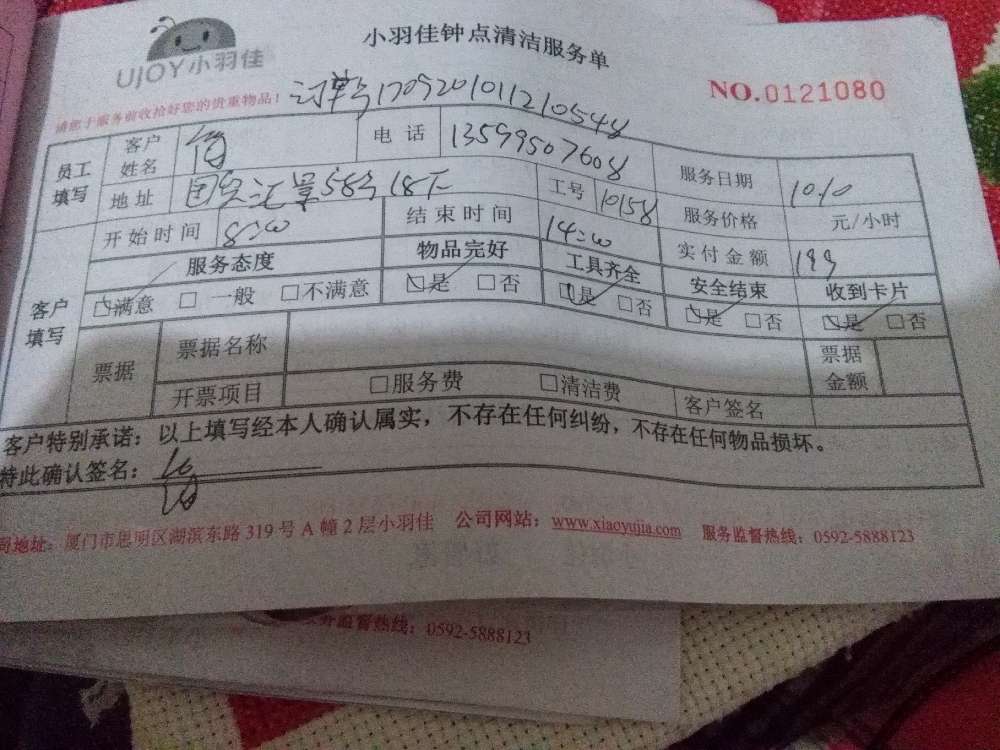 UJOY小羽佳
小羽佳钟点清洁服务单
NO.0121080
请您于服务前收拾好您的贵重物品！
订单号170920101121054y
员工填写 客户姓名 电话 13599507608 服务日期 10.10
地址 国贸汇景58号18下 工号 10158 服务价格 元/小时
客户填写 开始时间 8:00 结束时间 14:00 实付金额 199
服务态度 物品完好 工具齐全 安全结束 收到卡片
☑满意 □一般 □不满意 ☑是 □否 ☑是 □否 ☑是 □否 ☑是 □否
票据 票据名称 票据金额
开票项目 □服务费 □清洁费 客户签名
客户特别承诺：以上填写经本人确认属实，不存在任何纠纷，不存在任何物品损坏。
特此确认签名：
司地址：厦门市思明区湖滨东路319号A幢2层小羽佳 公司网站：www.xiaoyujia.com 服务监督热线：0592-5888123
务监督热线：0592-5888123